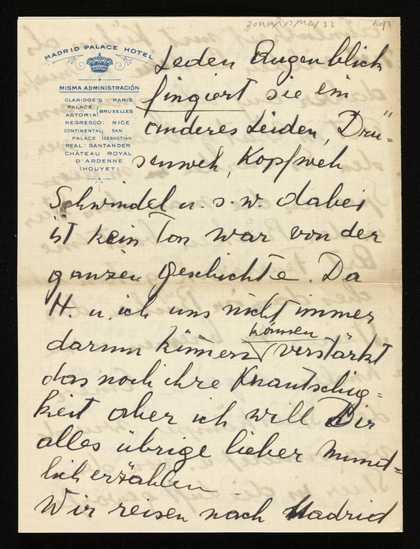 MADRID PALACE HOTEL
MISMA ADMINISTRACIÓN
CLARIDGE'S PARIS
PALACE
ASTORIA BRUXELLES
NEGRESCO NICE
CONTINENTAL SAN
PALACE SEBASTIAN
REAL SANTANDER
CHÂTEAU ROYAL
D'ARDENNE
(HOUYET)
Jeden Augenblick
fingiert sie ein
anderes Leiden,
Kopfweh
Schwindel u. s. w. dabei
ist kein Ton war von der
ganzen Geschichte. Da
H. u. ich uns nicht immer
darum kümmern können verstärkt
das noch ihre Knautschig-
keit aber ich will Dir
alles übrige lieber münd-
lich erzählen
Wir reisen nach Madrid